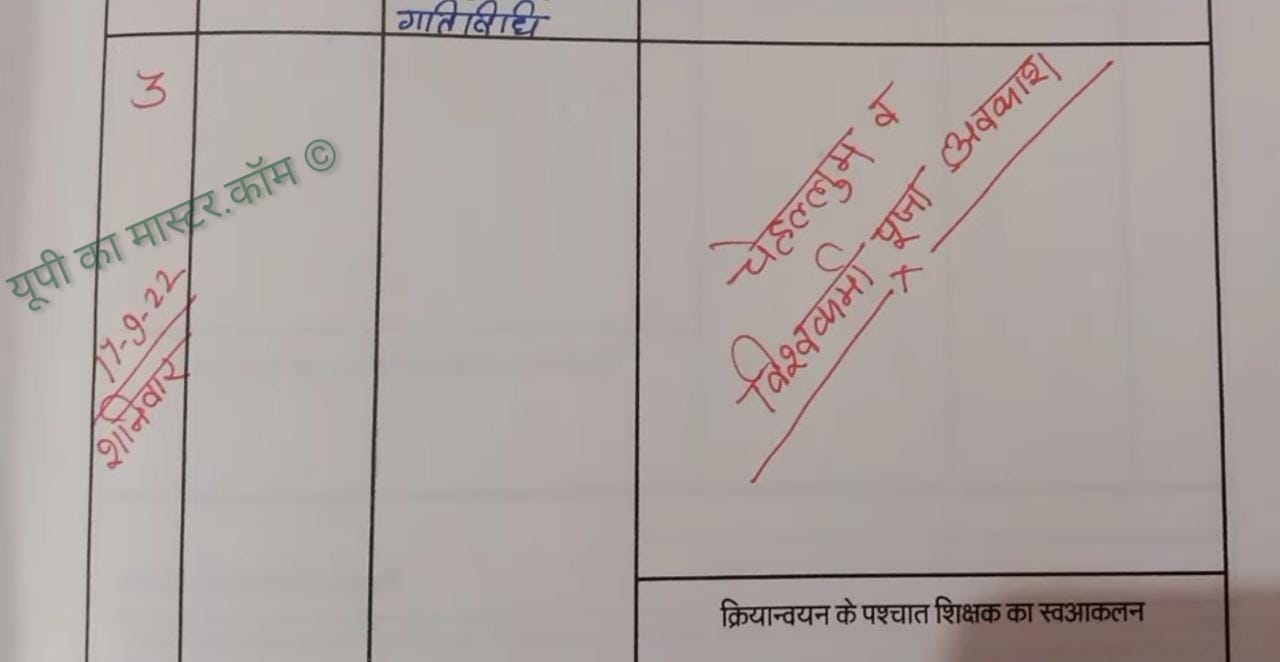 गतिविधि
3
यूपी का मास्टर.कॉम ©
17-9-22
शनिवार
चेहल्लुम व
विश्वकर्मा पूजा अवकाश
क्रियान्वयन के पश्चात शिक्षक का स्वआकलन